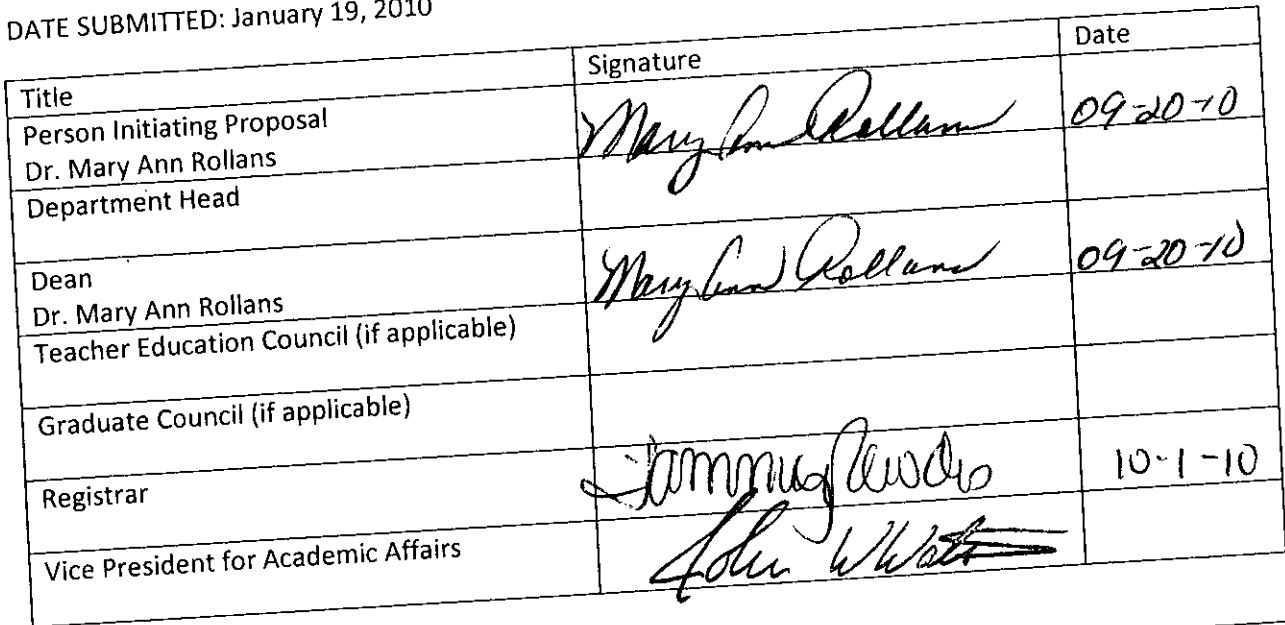 DATE SUBMITTED: January 19, 2010
Title Signature Date
Person Initiating Proposal
Dr. Mary Ann Rollans Mary Ann Rollans 09-20-10
Department Head
Dean
Dr. Mary Ann Rollans Mary Ann Rollans 09-20-10
Teacher Education Council (if applicable)
Graduate Council (if applicable)
Registrar Tammy 10-1-10
Vice President for Academic Affairs John W Watson